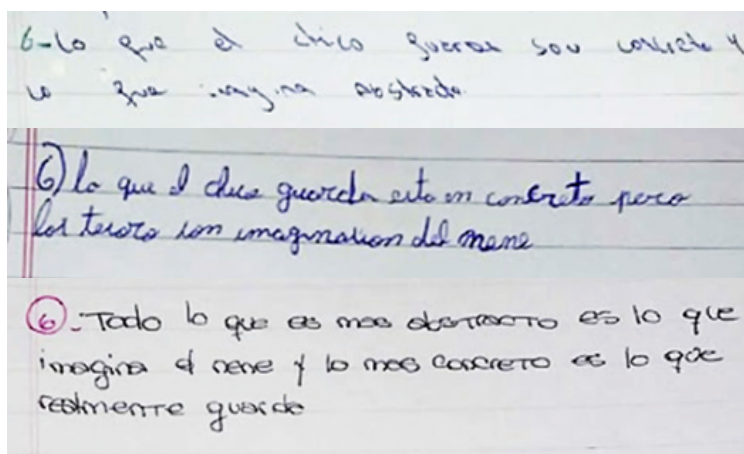 6-Lo que el chico guarda son concreto y
lo que imagina abstracto.
6) lo que el chico guarda esta en concreto pero
los tesoro son imaginasion del nene
6.- Todo lo que es mas abstracto es lo que
imagina el nene y lo mas concreto es lo que
realmente guarda